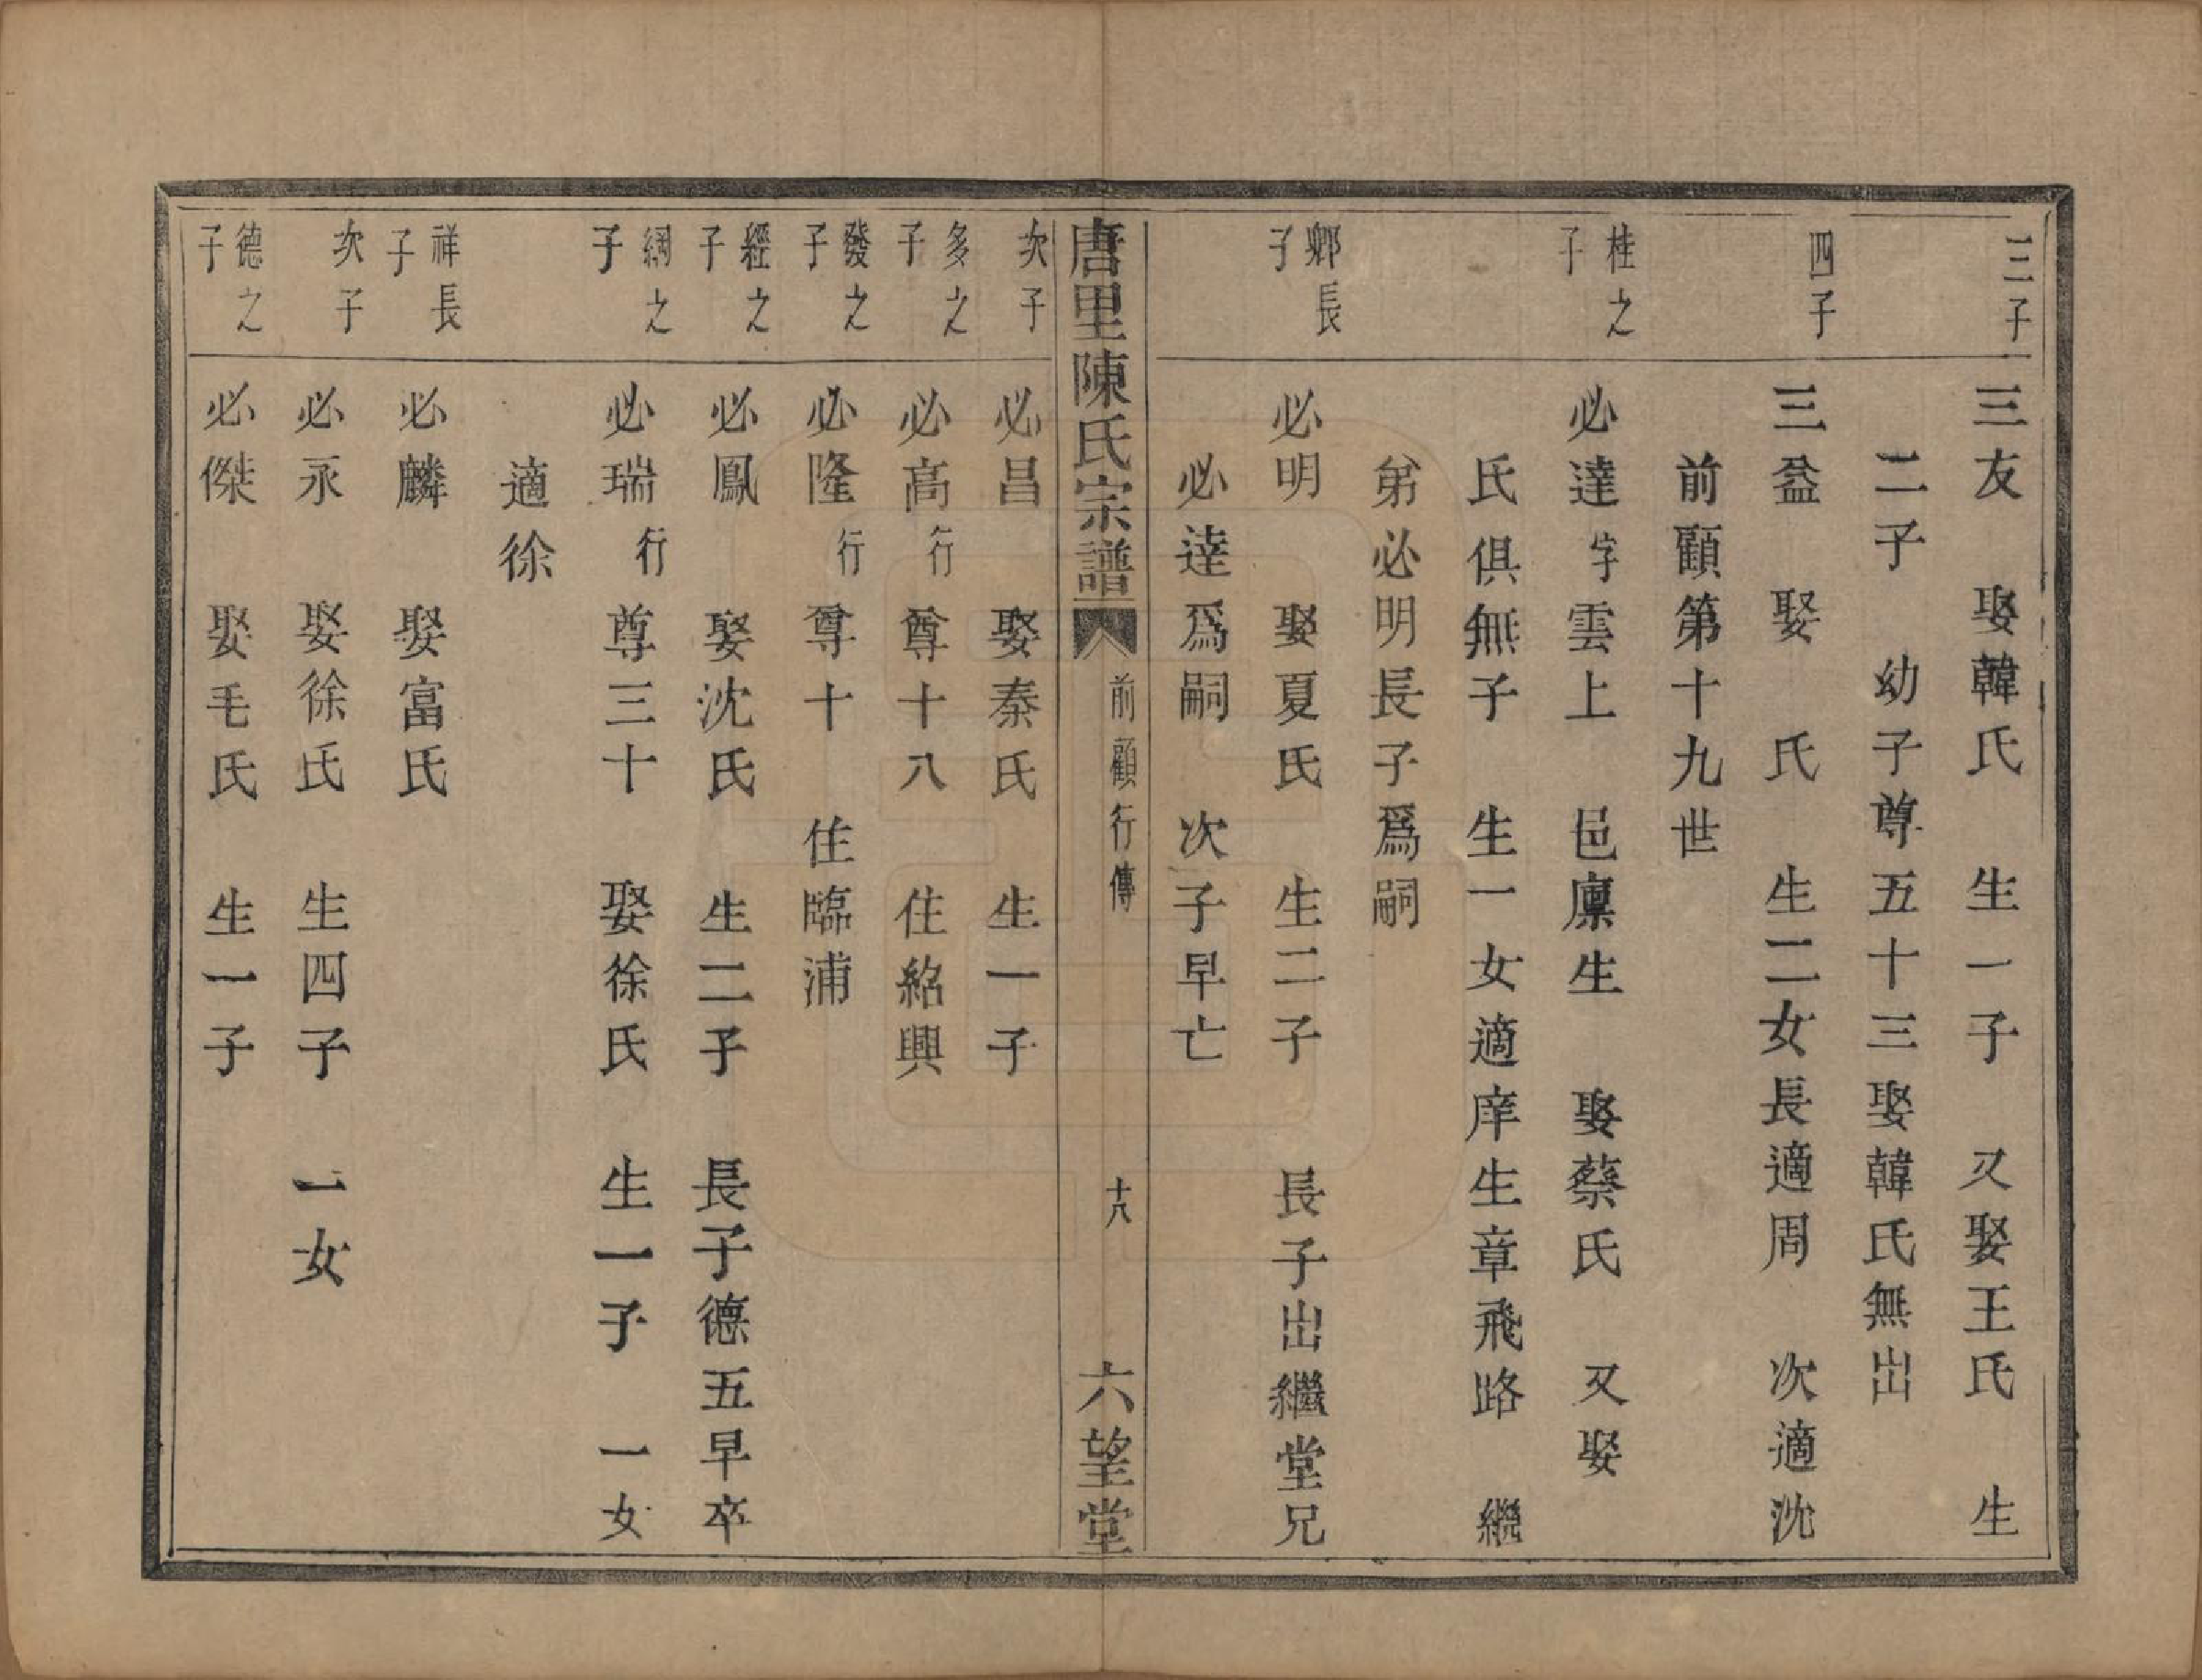 三子
三友　娶韓氏　生一子　又娶王氏　生
二子　幼子尊五十三娶韓氏無出
四子
三益　娶　氏　生二女長適周　次適沈
前顧第十九世
桂之子
必達字雲上　邑廩生　娶蔡氏　又娶
氏俱無子　生一女適庠生章飛路　繼
弟必明長子爲嗣
鄉長子
必明　娶夏氏　生二子　長子出繼堂兄
必達爲嗣　次子早亡
唐里陳氏宗譜　前顧行傳　十八　六望堂
次子
必昌　娶秦氏　生一子
多之子
必高行尊十八　住紹興
發之子
必隆行尊十　住臨浦
經之子
必鳳　娶沈氏　生二子　長子德五早卒
綱之子
必瑞行尊三十　娶徐氏　生一子　一女
適徐
祥長子
必麟　娶富氏
次子
必永　娶徐氏　生四子　一女
德之子
必傑　娶毛氏　生一子